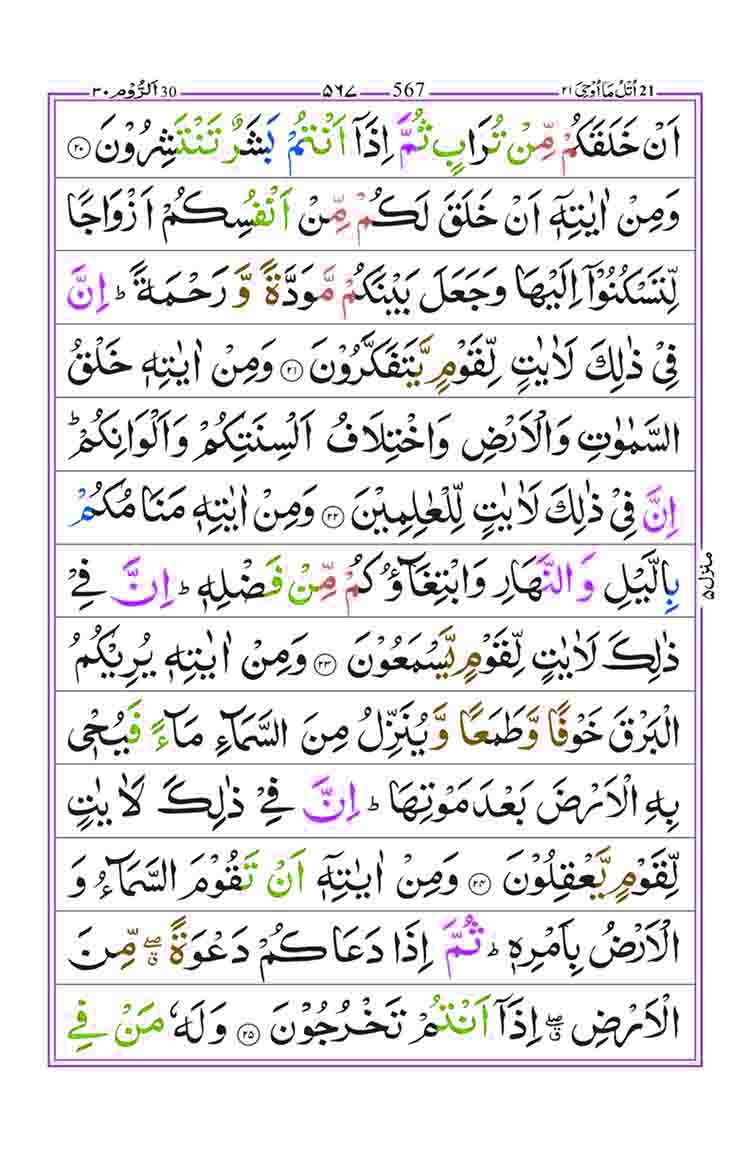 اَلرُّوْم ٣٠ 30 ۵۶۷ 567 اُتْلُ مَاۤ اُوْحِیَ ٢١ 21
اَنْ خَلَقَكُمْ مِّنْ تُرَابٍ ثُمَّ اِذَاۤ اَنْتُمْ بَشَرٌ تَنْتَشِرُوْنَ ۝۲۰
وَمِنْ اٰيٰتِهٖۤ اَنْ خَلَقَ لَكُمْ مِّنْ اَنْفُسِكُمْ اَزْوَاجًا
لِّتَسْكُنُوْۤا اِلَيْهَا وَجَعَلَ بَيْنَكُمْ مَّوَدَّةً وَّ رَحْمَةً ؕ اِنَّ
فِیْ ذٰلِكَ لَاٰيٰتٍ لِّقَوْمٍ يَّتَفَكَّرُوْنَ ۝۲۱ وَمِنْ اٰيٰتِهٖ خَلْقُ
السَّمٰوٰتِ وَالْاَرْضِ وَاخْتِلَافُ اَلْسِنَتِكُمْ وَاَلْوَانِكُمْ ؕ
اِنَّ فِیْ ذٰلِكَ لَاٰيٰتٍ لِّلْعٰلِمِيْنَ ۝۲۲ وَمِنْ اٰيٰتِهٖ مَنَامُكُمْ
بِالَّيْلِ وَالنَّهَارِ وَابْتِغَآؤُكُمْ مِّنْ فَضْلِهٖ ؕ اِنَّ فِیْ
ذٰلِكَ لَاٰيٰتٍ لِّقَوْمٍ يَّسْمَعُوْنَ ۝۲۳ وَمِنْ اٰيٰتِهٖ يُرِيْكُمُ
الْبَرْقَ خَوْفًا وَّطَمَعًا وَّيُنَزِّلُ مِنَ السَّمَآءِ مَآءً فَيُحْیٖ
بِهِ الْاَرْضَ بَعْدَ مَوْتِهَا ؕ اِنَّ فِیْ ذٰلِكَ لَاٰيٰتٍ
لِّقَوْمٍ يَّعْقِلُوْنَ ۝۲۴ وَمِنْ اٰيٰتِهٖۤ اَنْ تَقُوْمَ السَّمَآءُ وَ
الْاَرْضُ بِاَمْرِهٖ ؕ ثُمَّ اِذَا دَعَاكُمْ دَعْوَةً ۖۗ مِّنَ
الْاَرْضِ ۖۗ اِذَاۤ اَنْتُمْ تَخْرُجُوْنَ ۝۲۵ وَلَهٗ مَنْ فِی
منزل ۵